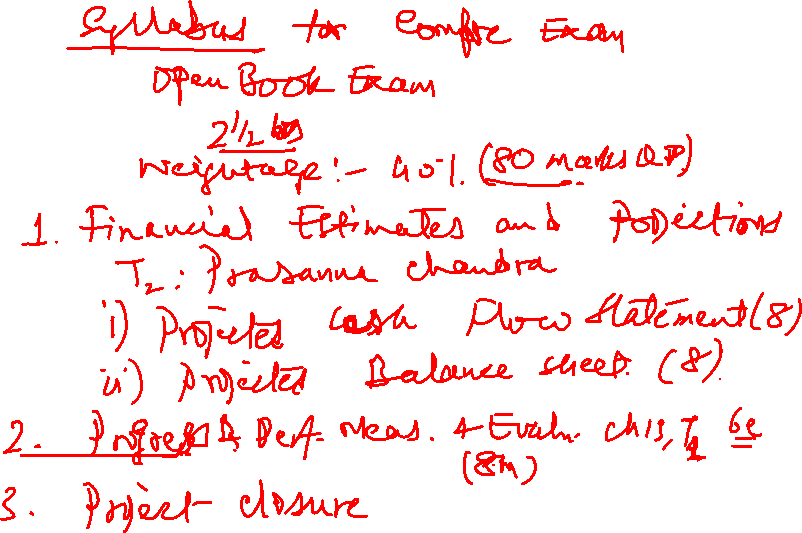 Syllabus for Compre Exam
Open Book Exam
2 1/2 hrs
Weightage :- 40% (80 marks QP)
1. Financial Estimates and Projections
T2 : Prasanna Chandra
i) Projected Cash Flow Statement (8)
ii) Projected Balance sheet. (8)
2. Progress & Perf. Meas. & Evaln. ch 13, T1 6e
(8m)
3. Project closure